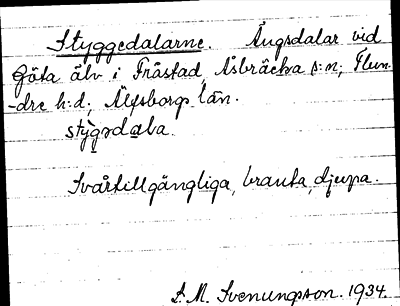 Styggedalarne. Ängsdalar vid
Göta älv i Fråstad, Åsbräcka s:n; Flun-
-dre h:d; Älfsborgs län.
Svårtillgängliga, branta, djupa.
S. M. Svenungsson. 1934.